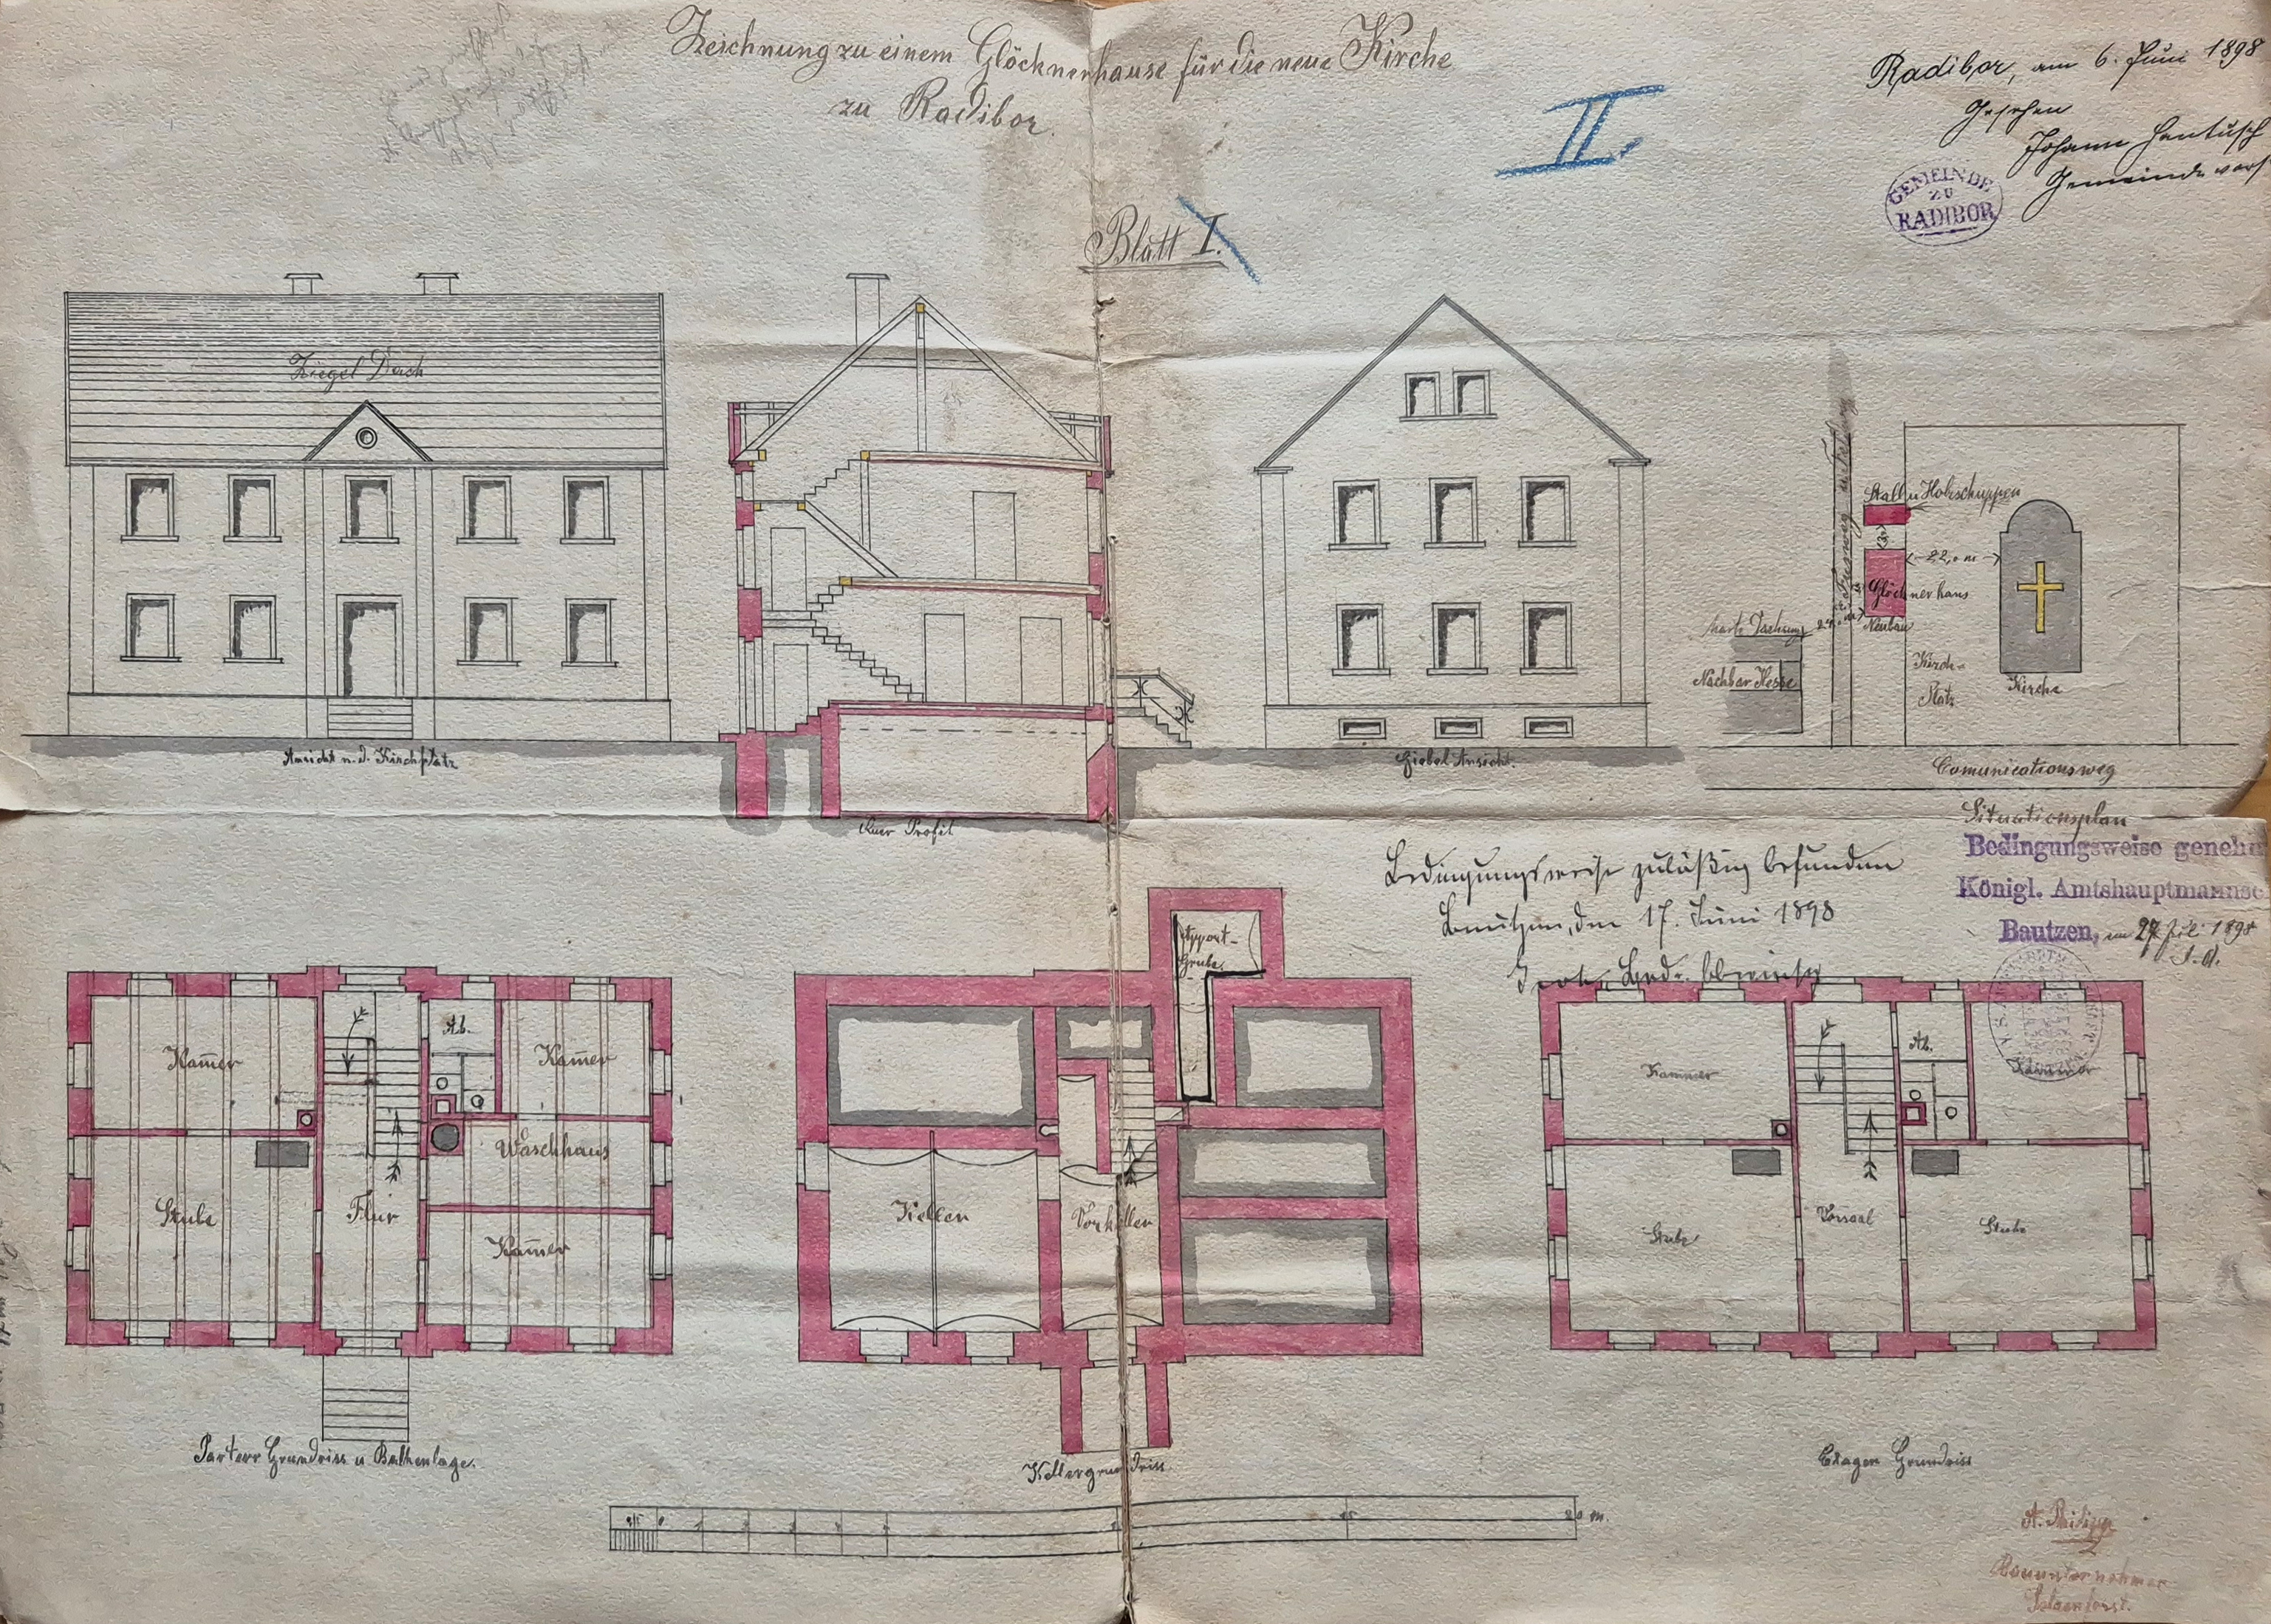 Zeichnung zu einem Glöcknerhause für die neue Kirche
zu Radibor.
II.
Blatt I.
Radibor, am 6. Juni 1898
Gesehen
Johann Hantusch
Gemeindevorst
GEMEINDE
ZU
RADIBOR
Ziegel Dach
Ansicht n. d. Kirchplatz
Quer Profil
Giebel Ansicht.
Stall u Holzschuppen
22,0 m
Glöcknerhaus
Neubau
Fussweg
harte Dachung
Nachbar Hesse
Kirch-
Platz
Kirche
Comunicationsweg
Situationsplan
Bedingungsweise zuläßig befunden
Bautzen, den 17. Juni 1898
Bedingungsweise geneh
Königl. Amtshauptmannsc
Bautzen, am 27 Juli 1898
I. A.
Kam̅er
Ab.
Kam̅er
Waschhaus
Stube
Flur
Kam̅er
Parterr Grundriss u Balkenlage.
Apport-
Grube.
Keller
Vorkeller
Kellergrundriss.
Kammer
Ab.
Kammer
Stube
Vorsaal
Stube
Etagen Grundriss
20 m.
A. Philipp
Bauunternehmer